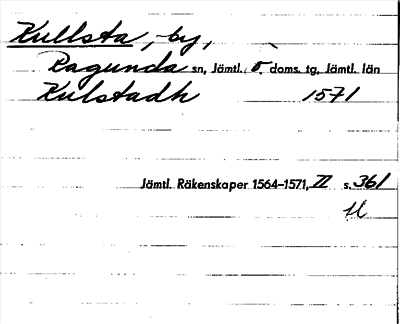 Kullsta, by,
Ragunda sn, Jämtl. ö. doms. tg, Jämtl. län
Kulstadh 1571
Jämtl. Räkenskaper 1564-1571, II s. 361